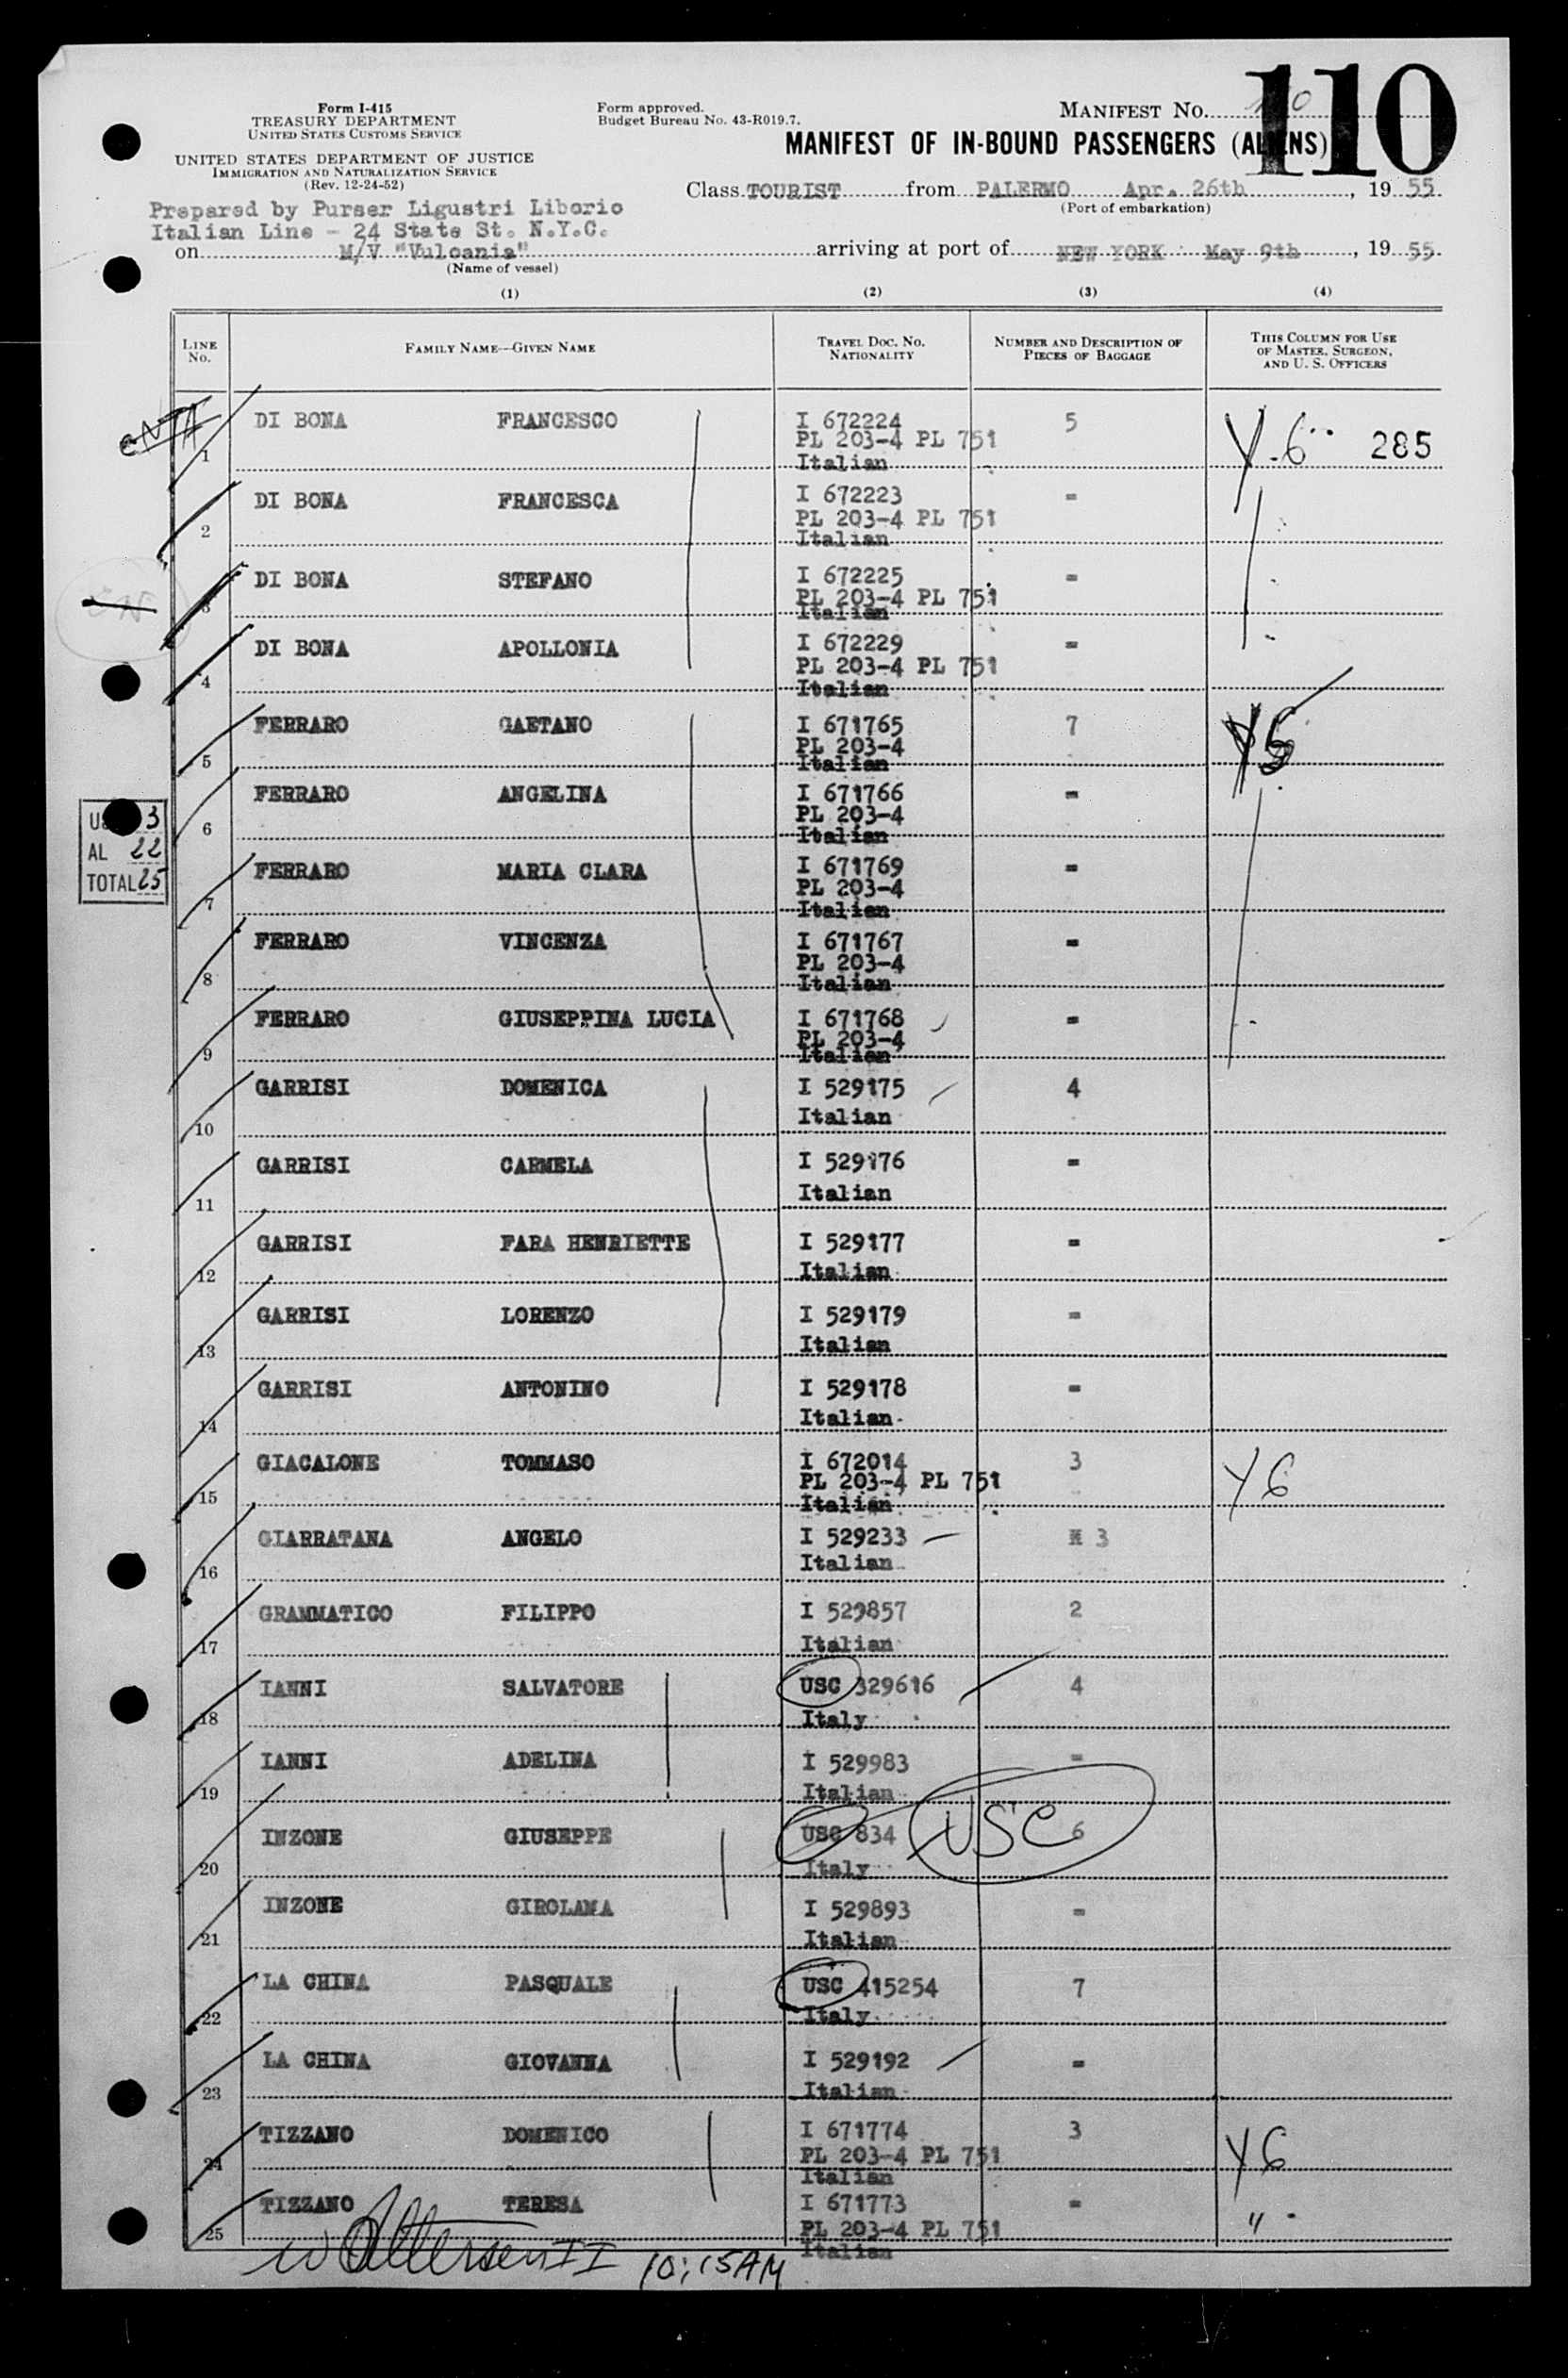 110
Form I-415
TREASURY DEPARTMENT
UNITED STATES CUSTOMS SERVICE
UNITED STATES DEPARTMENT OF JUSTICE
IMMIGRATION AND NATURALIZATION SERVICE
(Rev. 12-24-52)
Form approved.
Budget Bureau No. 43-R019.7.
MANIFEST NO. 110
MANIFEST OF IN-BOUND PASSENGERS (ALIENS)
Class TOURIST from PALERMO Apr. 26th, 19 55
(Port of embarkation)
Prepared by Purser Ligustri Liborio
Italian Line - 24 State St. N.Y.C.
on M/V "Vulcania" arriving at port of NEW YORK May 9th, 19 55
(Name of vessel)
(1) (2) (3) (4)
LINE No. FAMILY NAME—GIVEN NAME TRAVEL DOC. NO. NATIONALITY NUMBER AND DESCRIPTION OF PIECES OF BAGGAGE THIS COLUMN FOR USE OF MASTER, SURGEON, AND U. S. OFFICERS
1 DI BONA FRANCESCO I 672224 5 Y-6 285
PL 203-4 PL 751
Italian
2 DI BONA FRANCESCA I 672223 -
PL 203-4 PL 751
Italian
3 DI BONA STEFANO I 672225 -
PL 203-4 PL 751
Italian
4 DI BONA APOLLONIA I 672229 -
PL 203-4 PL 751
Italian
5 FERRARO GAETANO I 671765 7 Y5
PL 203-4
Italian
6 FERRARO ANGELINA I 671766 -
PL 203-4
Italian
US 3
AL 22
TOTAL 25
7 FERRARO MARIA CLARA I 671769 -
PL 203-4
Italian
8 FERRARO VINCENZA I 671767 -
PL 203-4
Italian
9 FERRARO GIUSEPPINA LUCIA I 671768 -
PL 203-4
Italian
10 GARRISI DOMENICA I 529175 4
Italian
11 GARRISI CARMELA I 529176 -
Italian
12 GARRISI FARA HENRIETTE I 529177 -
Italian
13 GARRISI LORENZO I 529179 -
Italian
14 GARRISI ANTONINO I 529178 -
Italian
15 GIACALONE TOMMASO I 672014 3 Y6
PL 203-4 PL 751
Italian
16 GIARRATANA ANGELO I 529233 3
Italian
17 GRAMMATICO FILIPPO I 529857 2
Italian
18 IANNI SALVATORE USC 329616 4
Italy
19 IANNI ADELINA I 529983 -
Italian
20 INZONE GIUSEPPE USC 834 USC 6
Italy
21 INZONE GIROLAMA I 529893 -
Italian
22 LA CHINA PASQUALE USC 415254 7
Italy
23 LA CHINA GIOVANNA I 529192 -
Italian
24 TIZZANO DOMENICO I 671774 3 Y6
PL 203-4 PL 751
Italian
25 TIZZANO TERESA I 671773 - "
PL 203-4 PL 751
Italian
10:15 AM